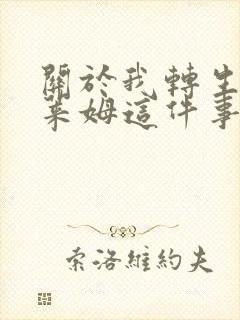 關於我轉生
萊姆這件事
索洛維約夫